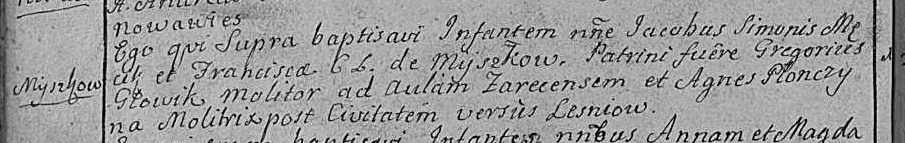 nowanies
Myszkow Ego qui Supra baptisavi Infantem nñe Jacobus Simonis Me
cik et Franciscæ C L. de Myszkow. Patrini fuêre Gregorius
Głowik Molitor ad Aulam Zarecensem et Agnes Płonczy
na Molitrix post Civitatem versus Lesniow.
baptisavi Infantem nnbus Annam et Magda